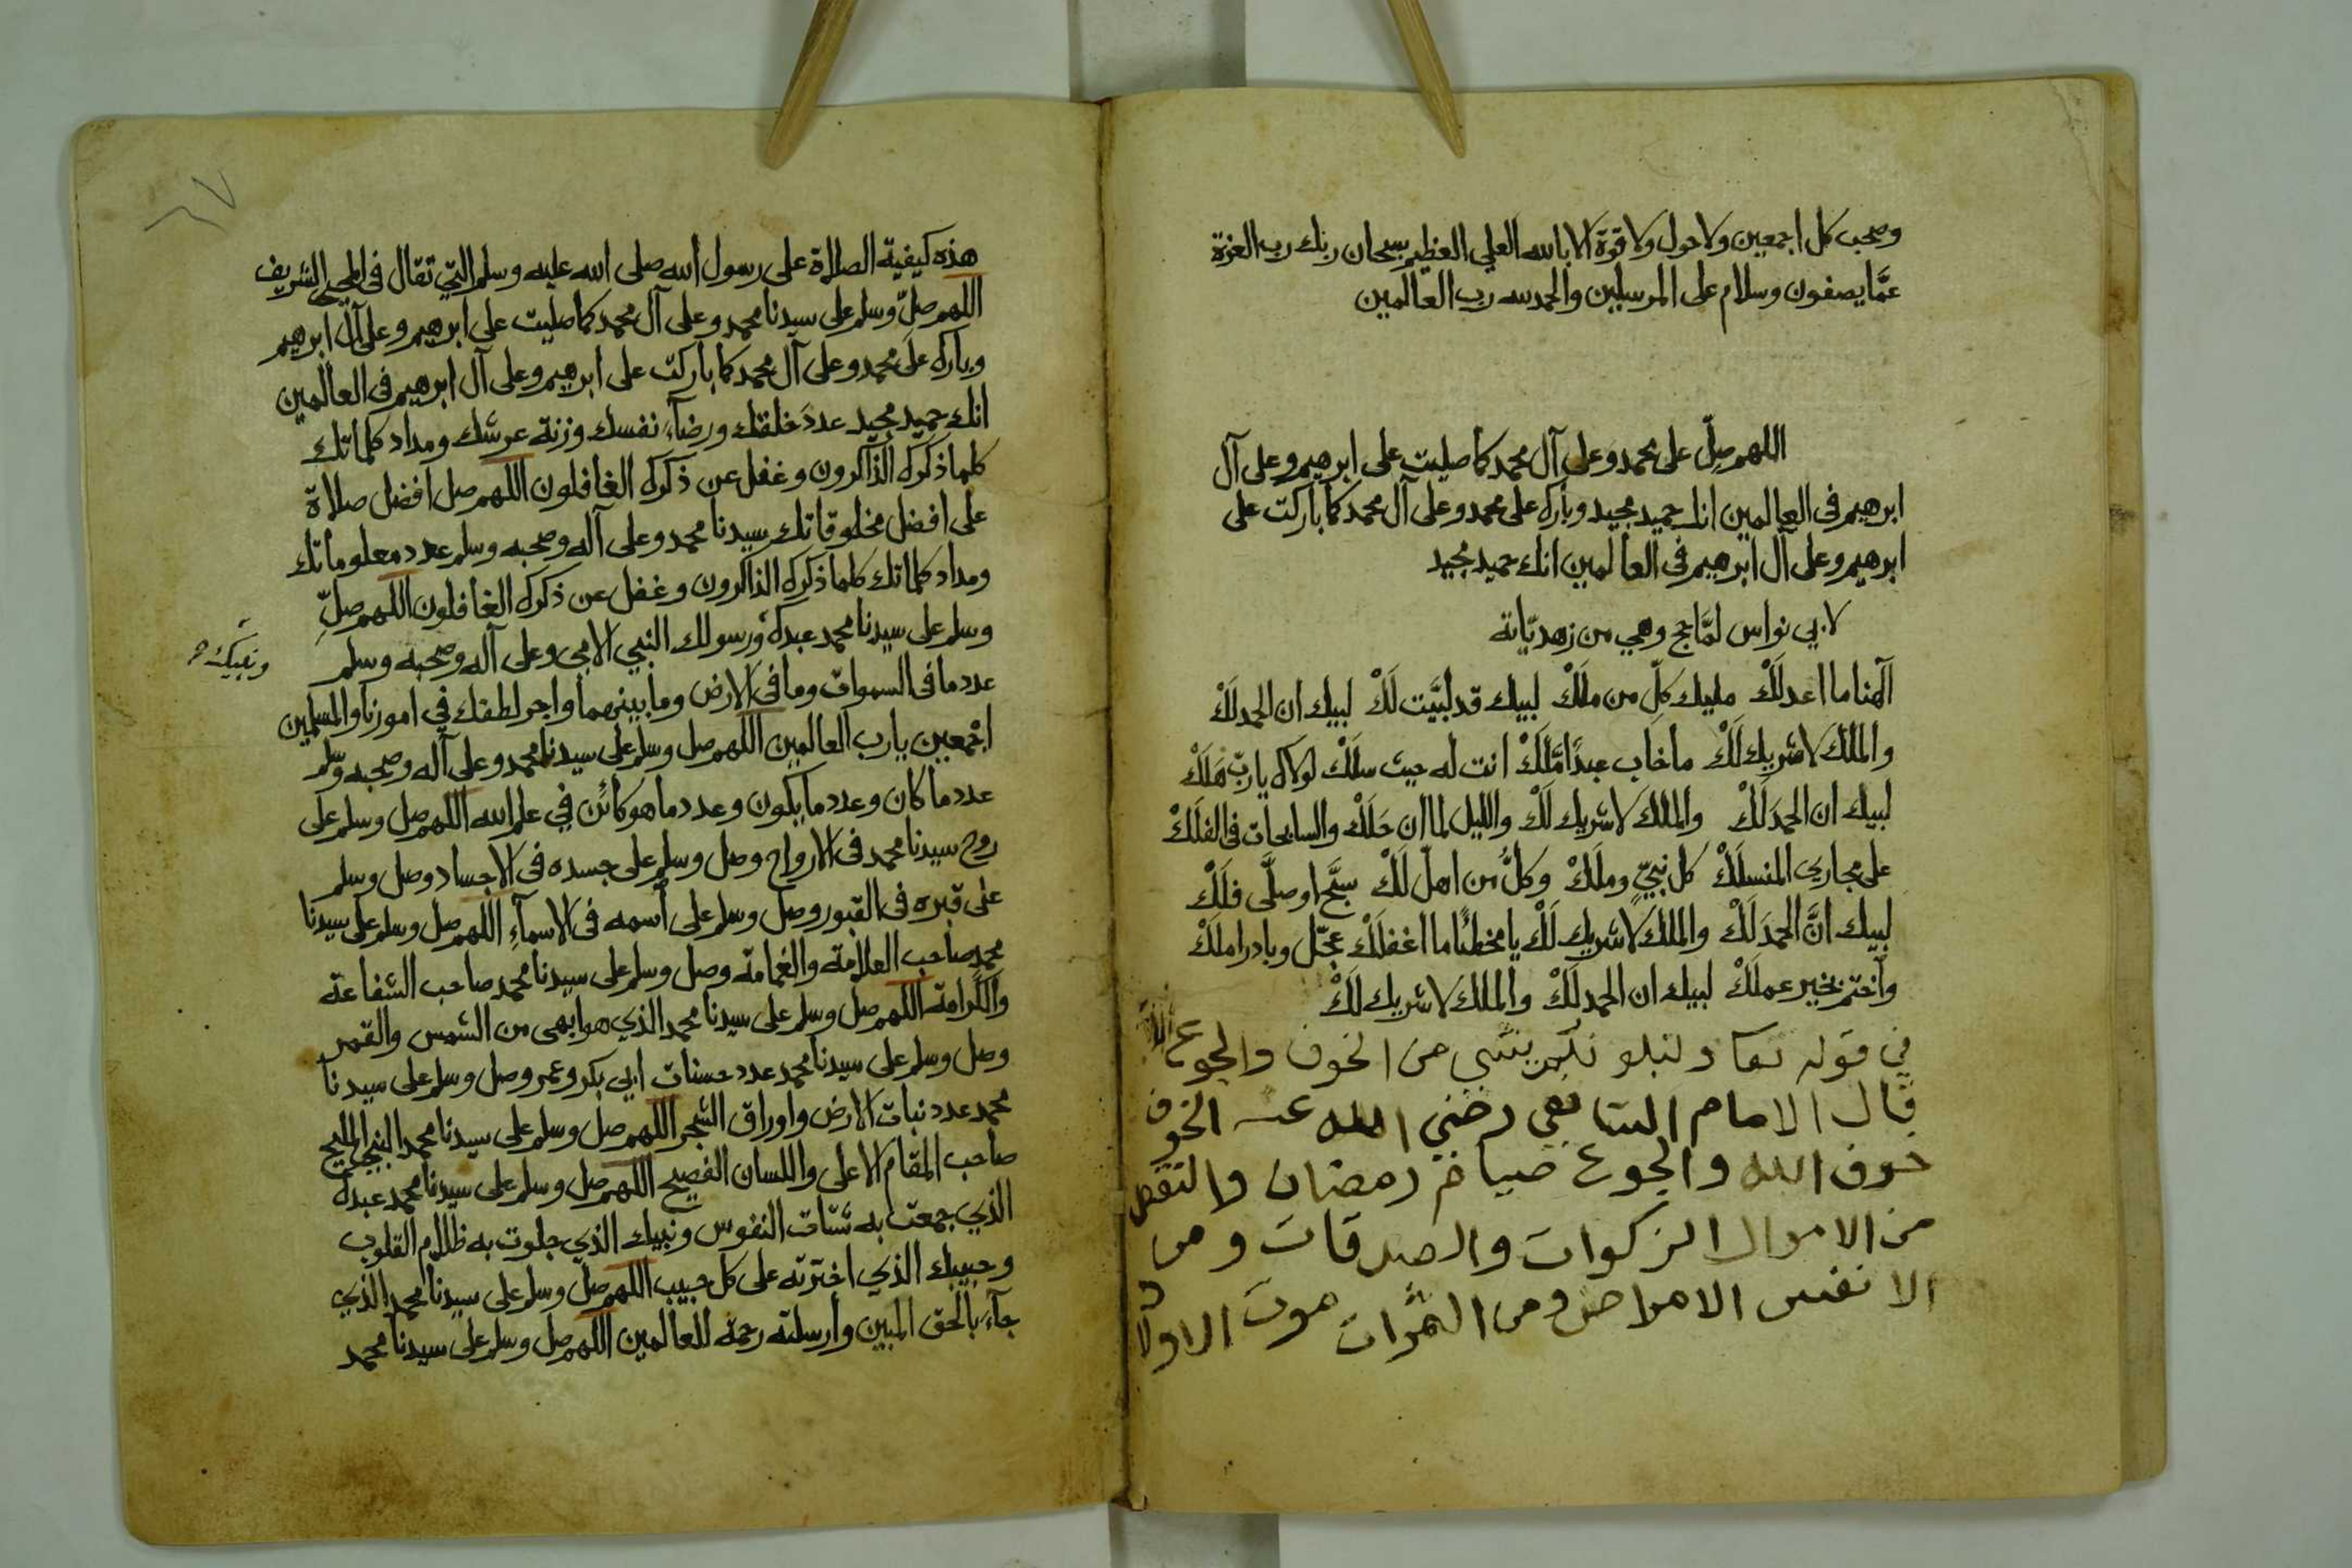 وصحب كل اجمعين ولا حول ولا قوة الا بالله العلي العظيم سبحان ربك رب العزة
عمَّا يصفون وسلام على المرسلين والحمد لله رب العالمين
اللهم صلّ على محمد وعلى آل محمد كما صليت على ابرهيم وعلى آل
ابرهيم في العالمين انك حميد مجيد وبارك على محمد وعلى آل محمد كما باركت على
ابرهيم وعلى آل ابرهيم في العالمين انك حميد مجيد
لابي نواس لمَّا حج وهي من زهديّاته
آلهنا ما اعدلَكْ مليك كلّ من ملَكْ لبيك قد لبَّيت لَكْ لبيك ان الحمد لَكْ
والملك لا شريك لَكْ ما خاب عبدًا مَّلَكْ انت له حيث سلَكْ لولاك يا ربّ هَلَكْ
لبيك ان الحمدَ لَكْ والملكَ لا شريك لَكْ والليل لما ان حَلَكْ والسابحات في الفلَكْ
على مجاري المنسلَكْ كل نبيّ وملَكْ وكلُّ من اهلّ لَكْ سبَّح او صلَّى فلَكْ
لبيك انَّ الحمدَ لَكْ والملكَ لا شريك لَكْ يا مخطئًا ما اغفلَكْ عجّل وبادر املَكْ
وآختم بخير عملَكْ لبيك ان الحمد لَكْ والملك لا شريك لَكْ
في قوله تعا ولنبلونكم بشي من الخوف والجوع
قال الامام الشافعي رضي الله عنه الخوف
خوف الله والجوع صيام رمضان والنقص
من الاموال الزكوات والصدقات ومن
الانفس الامراض ومن الثمرات موت الاولاد
هذه كيفية الصلاة على رسول الله صلى الله عليه وسلم التي تقال في المحيا الشريف
اللهم صلّ وسلم على سيدنا محمد وعلى آل محمد كما صليت على ابرهيم وعلى آل ابرهيم
وبارك على محمد وعلى آل محمد كما باركت على ابرهيم وعلى آل ابرهيم في العالمين
انك حميد مجيد عددَ خلقك ورضآء نفسك وزنة عرشك ومداد كلماتك
كلما ذكرك الذاكرون وغفل عن ذكرك الغافلون اللهم صل افضل صلاة
على افضل مخلوقاتك سيدنا محمد وعلى آله وصحبه وسلم عدد معلوماتك
ومداد كلماتك كلما ذكرك الذاكرون وغفل عن ذكرك الغافلون اللهم صلّ
وسلم على سيدنا محمد عبدك ورسولك النبي الامي وعلى آله وصحبه وسلم
ونبيك
عدد ما في السموات وما في الارض وما بينهما واجر لطفك في امورنا والمسلمين
اجمعين يا رب العالمين اللهم صل وسلم على سيدنا محمد وعلى آله وصحبه وسلم
عدد ما كان وعدد ما يكون وعدد ما هو كائن في علم الله اللهم صل وسلم على
روح سيدنا محمد في الارواح وصل وسلم على جسده في الاجساد وصل وسلم
على قبره في القبور وصل وسلم على اسمه في الاسمآء اللهم صل وسلم على سيدنا
محمد صاحب العلامة والغمامة وصل وسلم على سيدنا محمد صاحب الشفاعة
والكرامة اللهم صل وسلم على سيدنا محمد الذي هو ابهى من الشمس والقمر
وصل وسلم على سيدنا محمد عدد حسنات ابي بكر وعمر وصل وسلم على سيدنا
محمد عدد نبات الارض واوراق الشجر اللهم صل وسلم على سيدنا محمد النبي المليح
صاحب المقام الاعلى واللسان الفصيح اللهم صل وسلم على سيدنا محمد عبدك
الذي جمعت به شتات النفوس ونبيك الذي جلوت به ظلام القلوب
وحبيبك الذي اخترته على كل حبيب اللهم صل وسلم على سيدنا محمد الذي
جآء بالحق المبين وارسلته رحمة للعالمين اللهم صل وسلم على سيدنا محمد